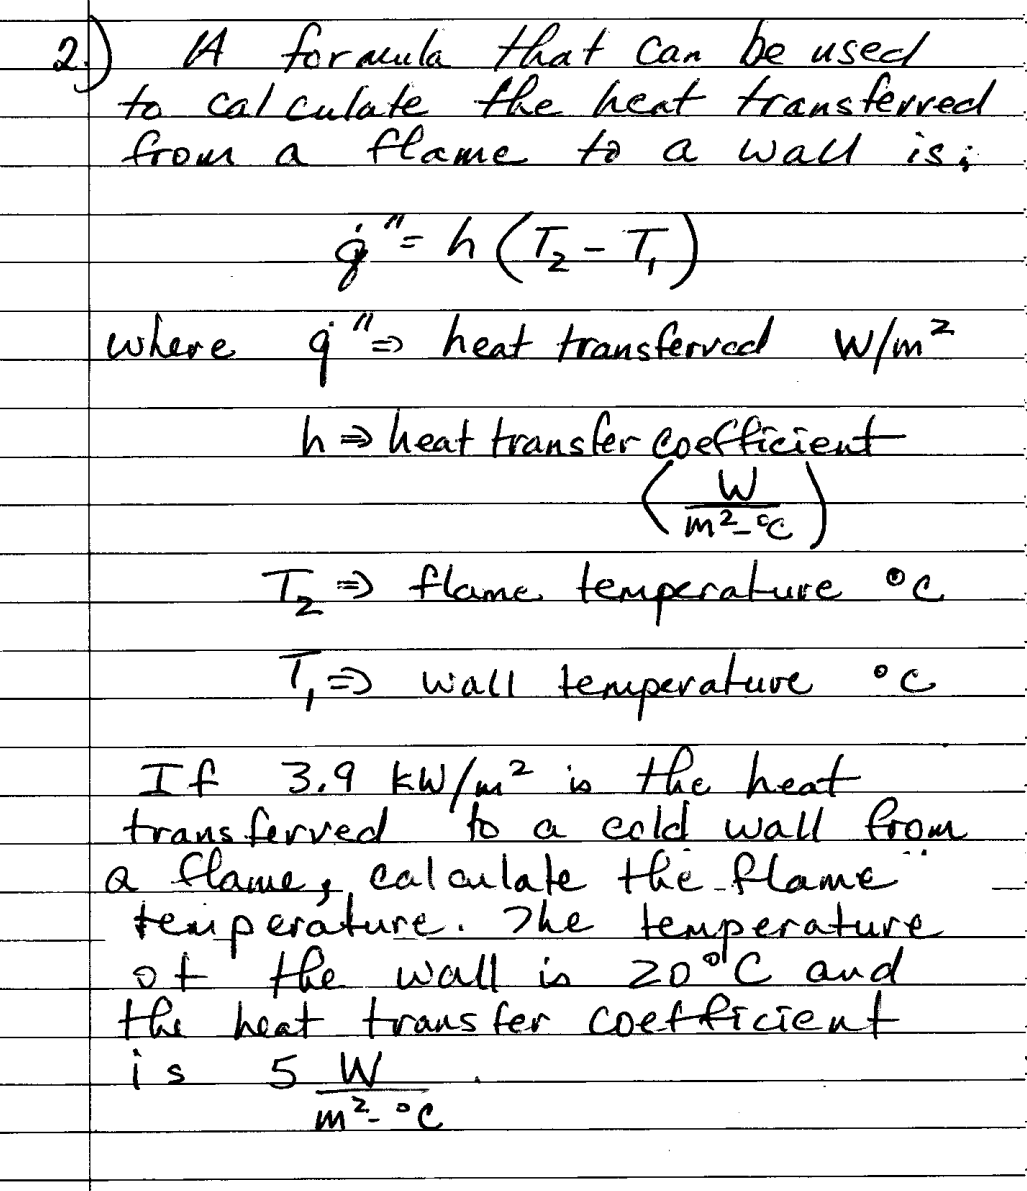 2.) A formula that can be used
to calculate the heat transferred
from a flame to a wall is;
q̇" = h (T₂ - T₁)
where q̇" ⇒ heat transferred W/m²
h ⇒ heat transfer coefficient
(W/m²-°C)
T₂ ⇒ flame temperature °C
T₁ ⇒ wall temperature °C
If 3.9 kW/m² is the heat
transferred to a cold wall from
a flame, calculate the flame
temperature. The temperature
of the wall is 20°C and
the heat transfer coefficient
is 5 W/m²-°C.